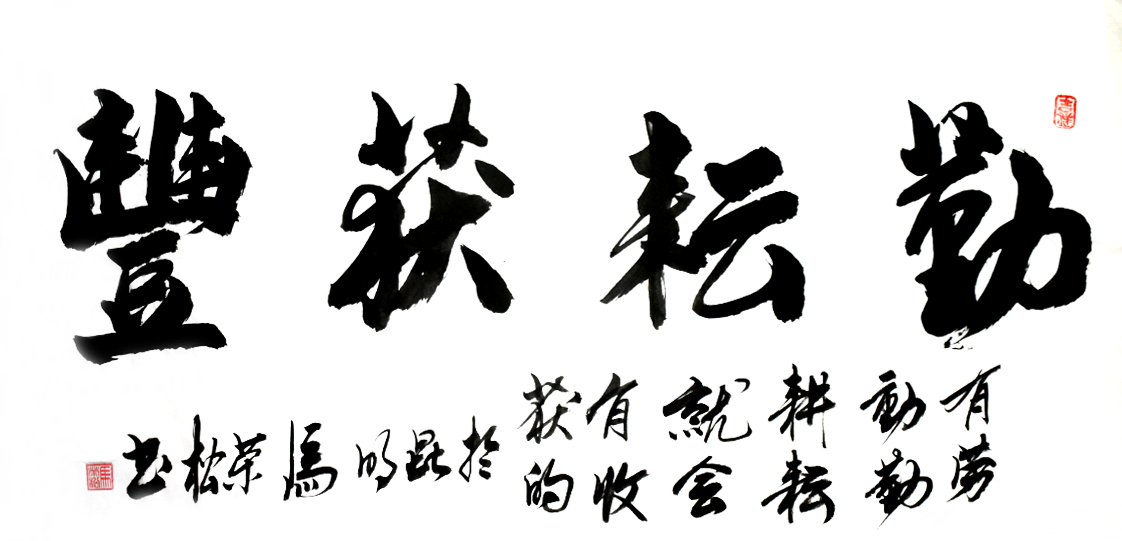 勤耘获豐
有劳
動勤
耕耘
就会
有收
获的
於昆明馬荣松书